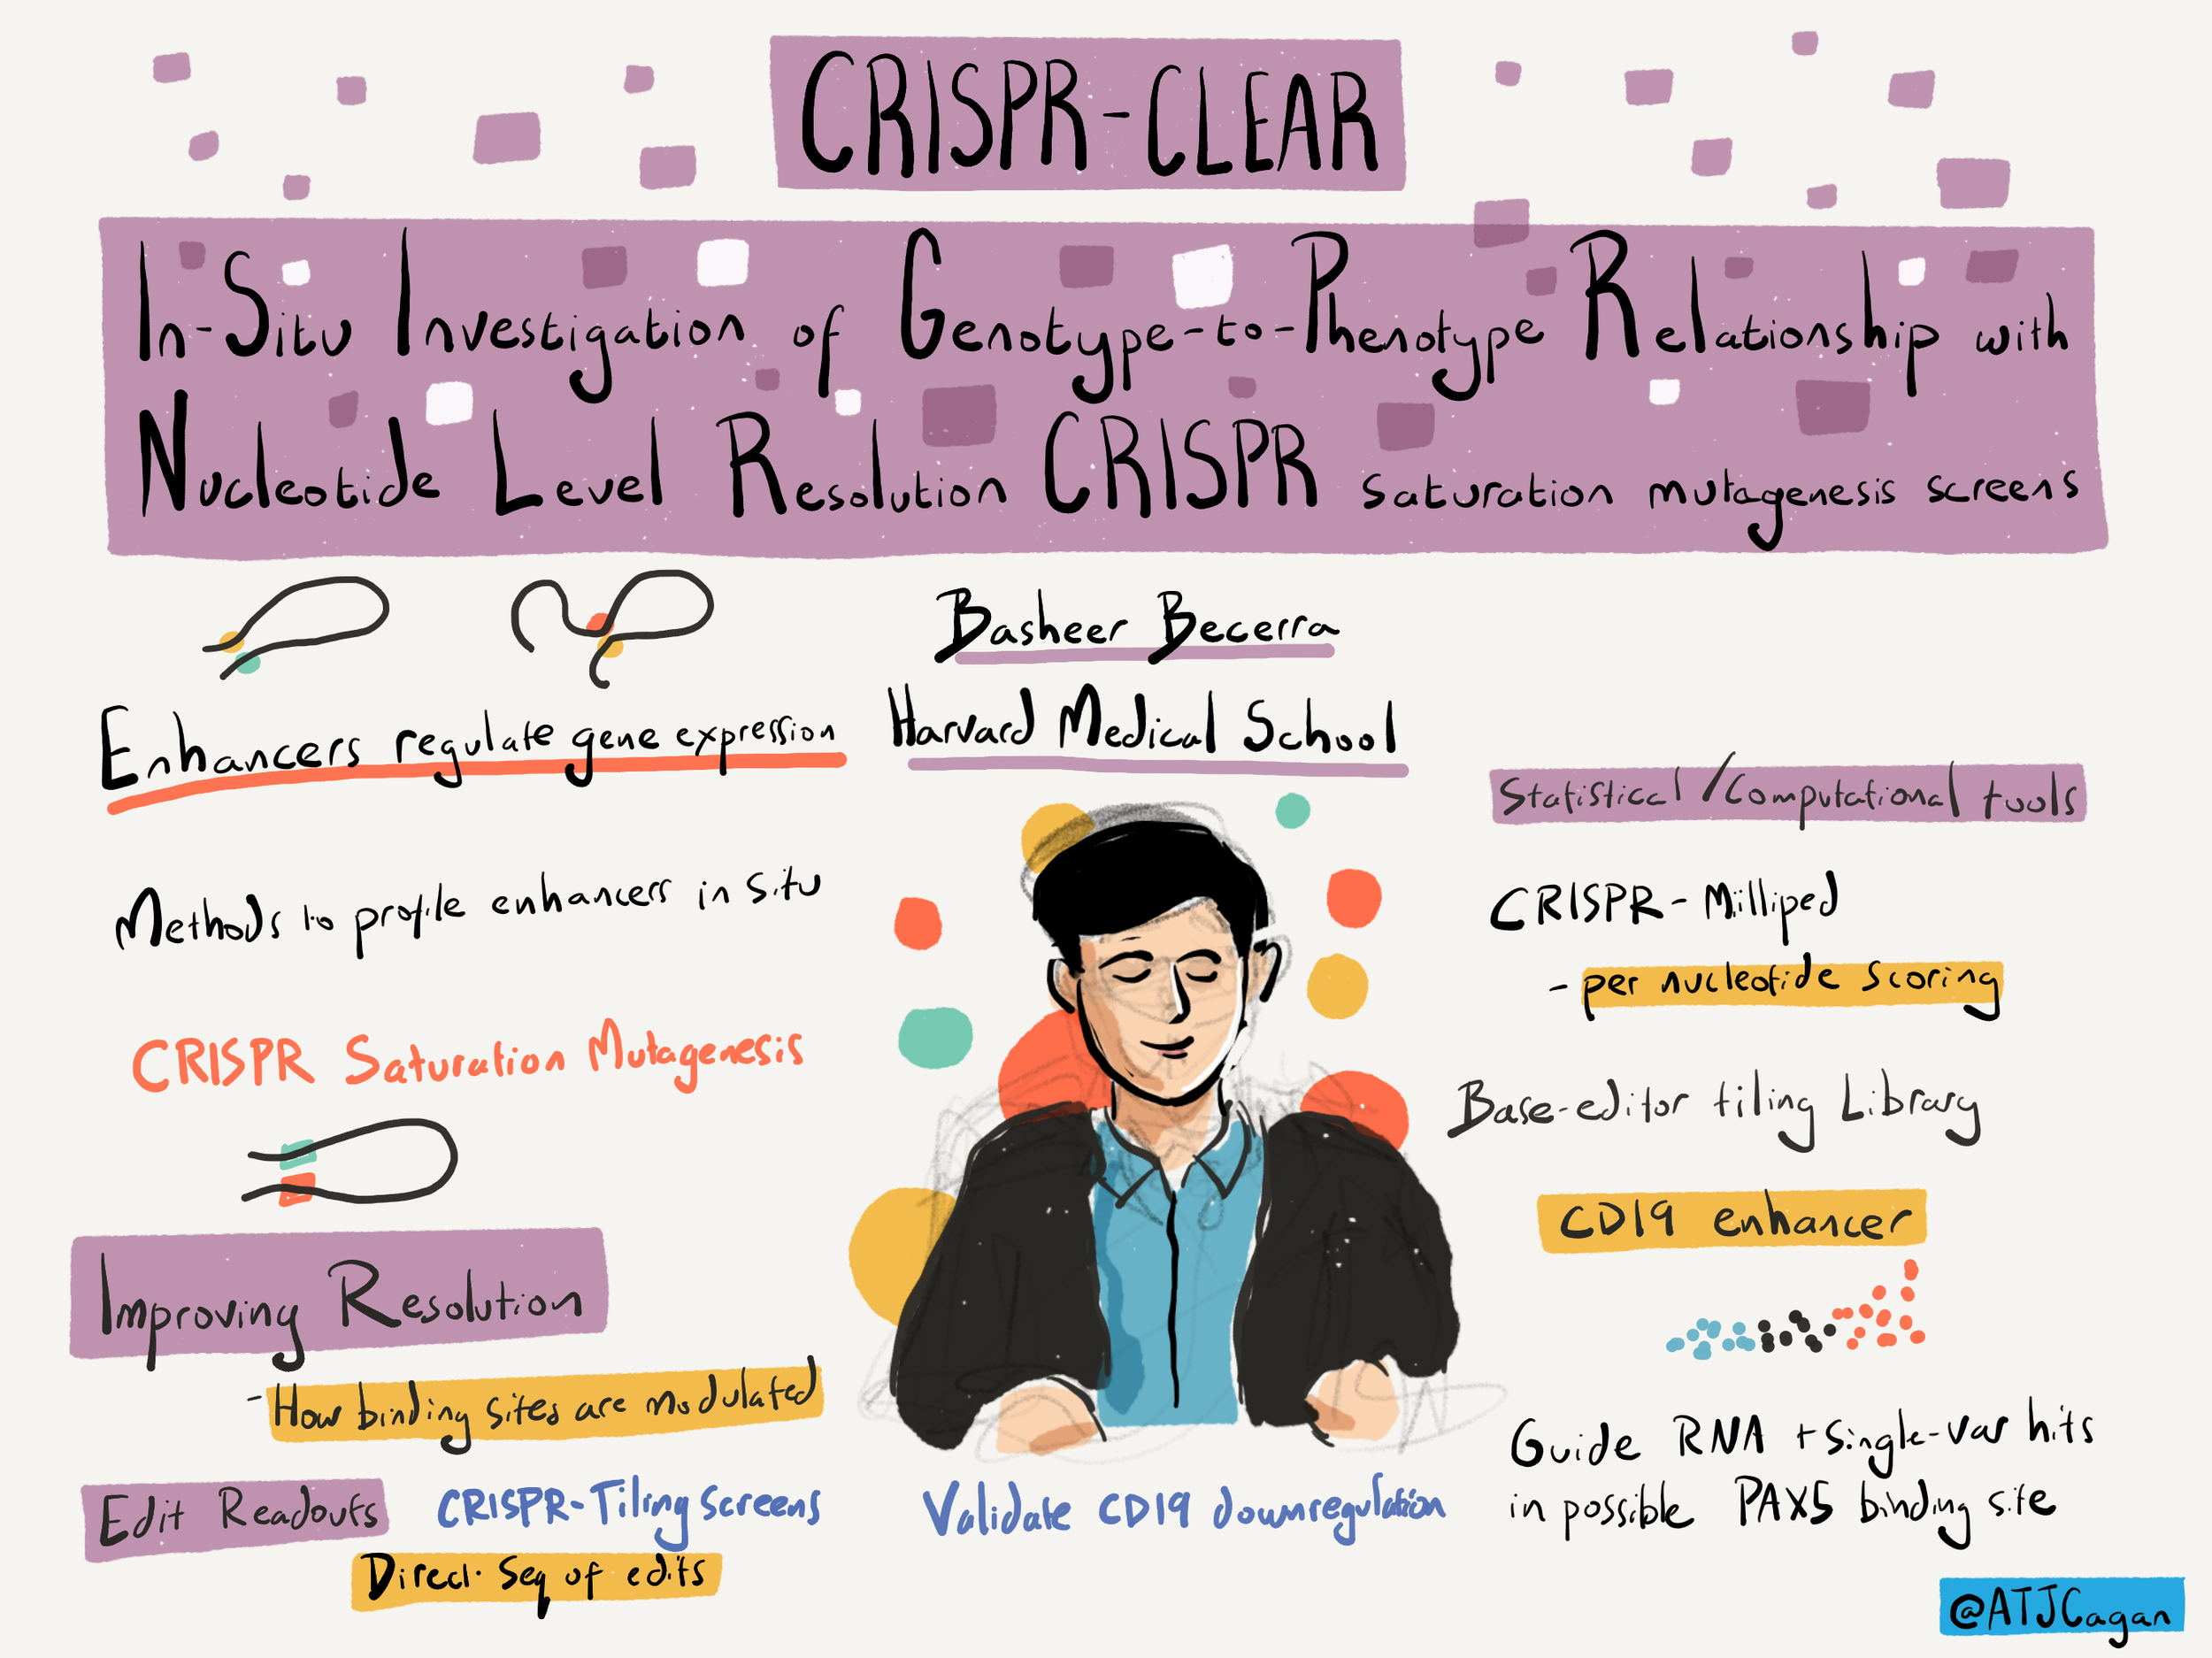 CRISPR-CLEAR
In-Situ Investigation of Genotype-to-Phenotype Relationship with
Nucleotide Level Resolution CRISPR saturation mutagenesis screens
Basheer Becerra
Harvard Medical School
Enhancers regulate gene expression
Methods to profile enhancers in situ
CRISPR Saturation Mutagenesis
Improving Resolution
- How binding sites are modulated
Edit Readouts
CRISPR-Tiling screens
Direct Seq of edits
Validate CD19 downregulation
Statistical/Computational tools
CRISPR-Milliped
- per nucleotide scoring
Base-editor tiling Library
CD19 enhancer
Guide RNA + Single-var hits
in possible PAX5 binding site
@ATJCagan